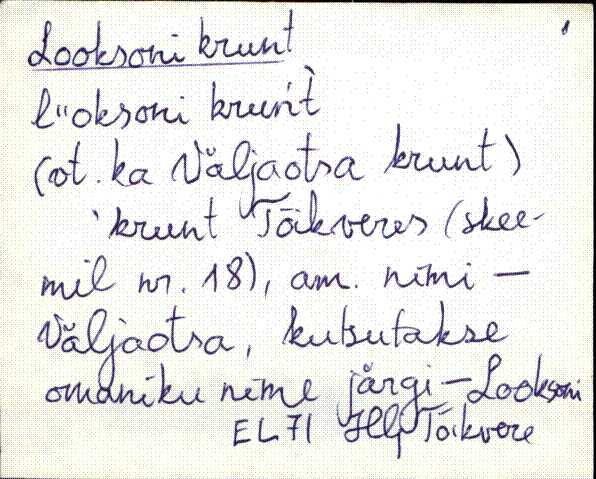 Looksoni krunt
l"oksoni krun't̀
(vt. ka Väljaotsa krunt)
'krunt Tāikveres (skee-
mil nr. 18), am. nimi —
Väljaotsa, kutsutakse
omaniku nime järgi — Looksoni
EL 71 Hlj Tāikvere